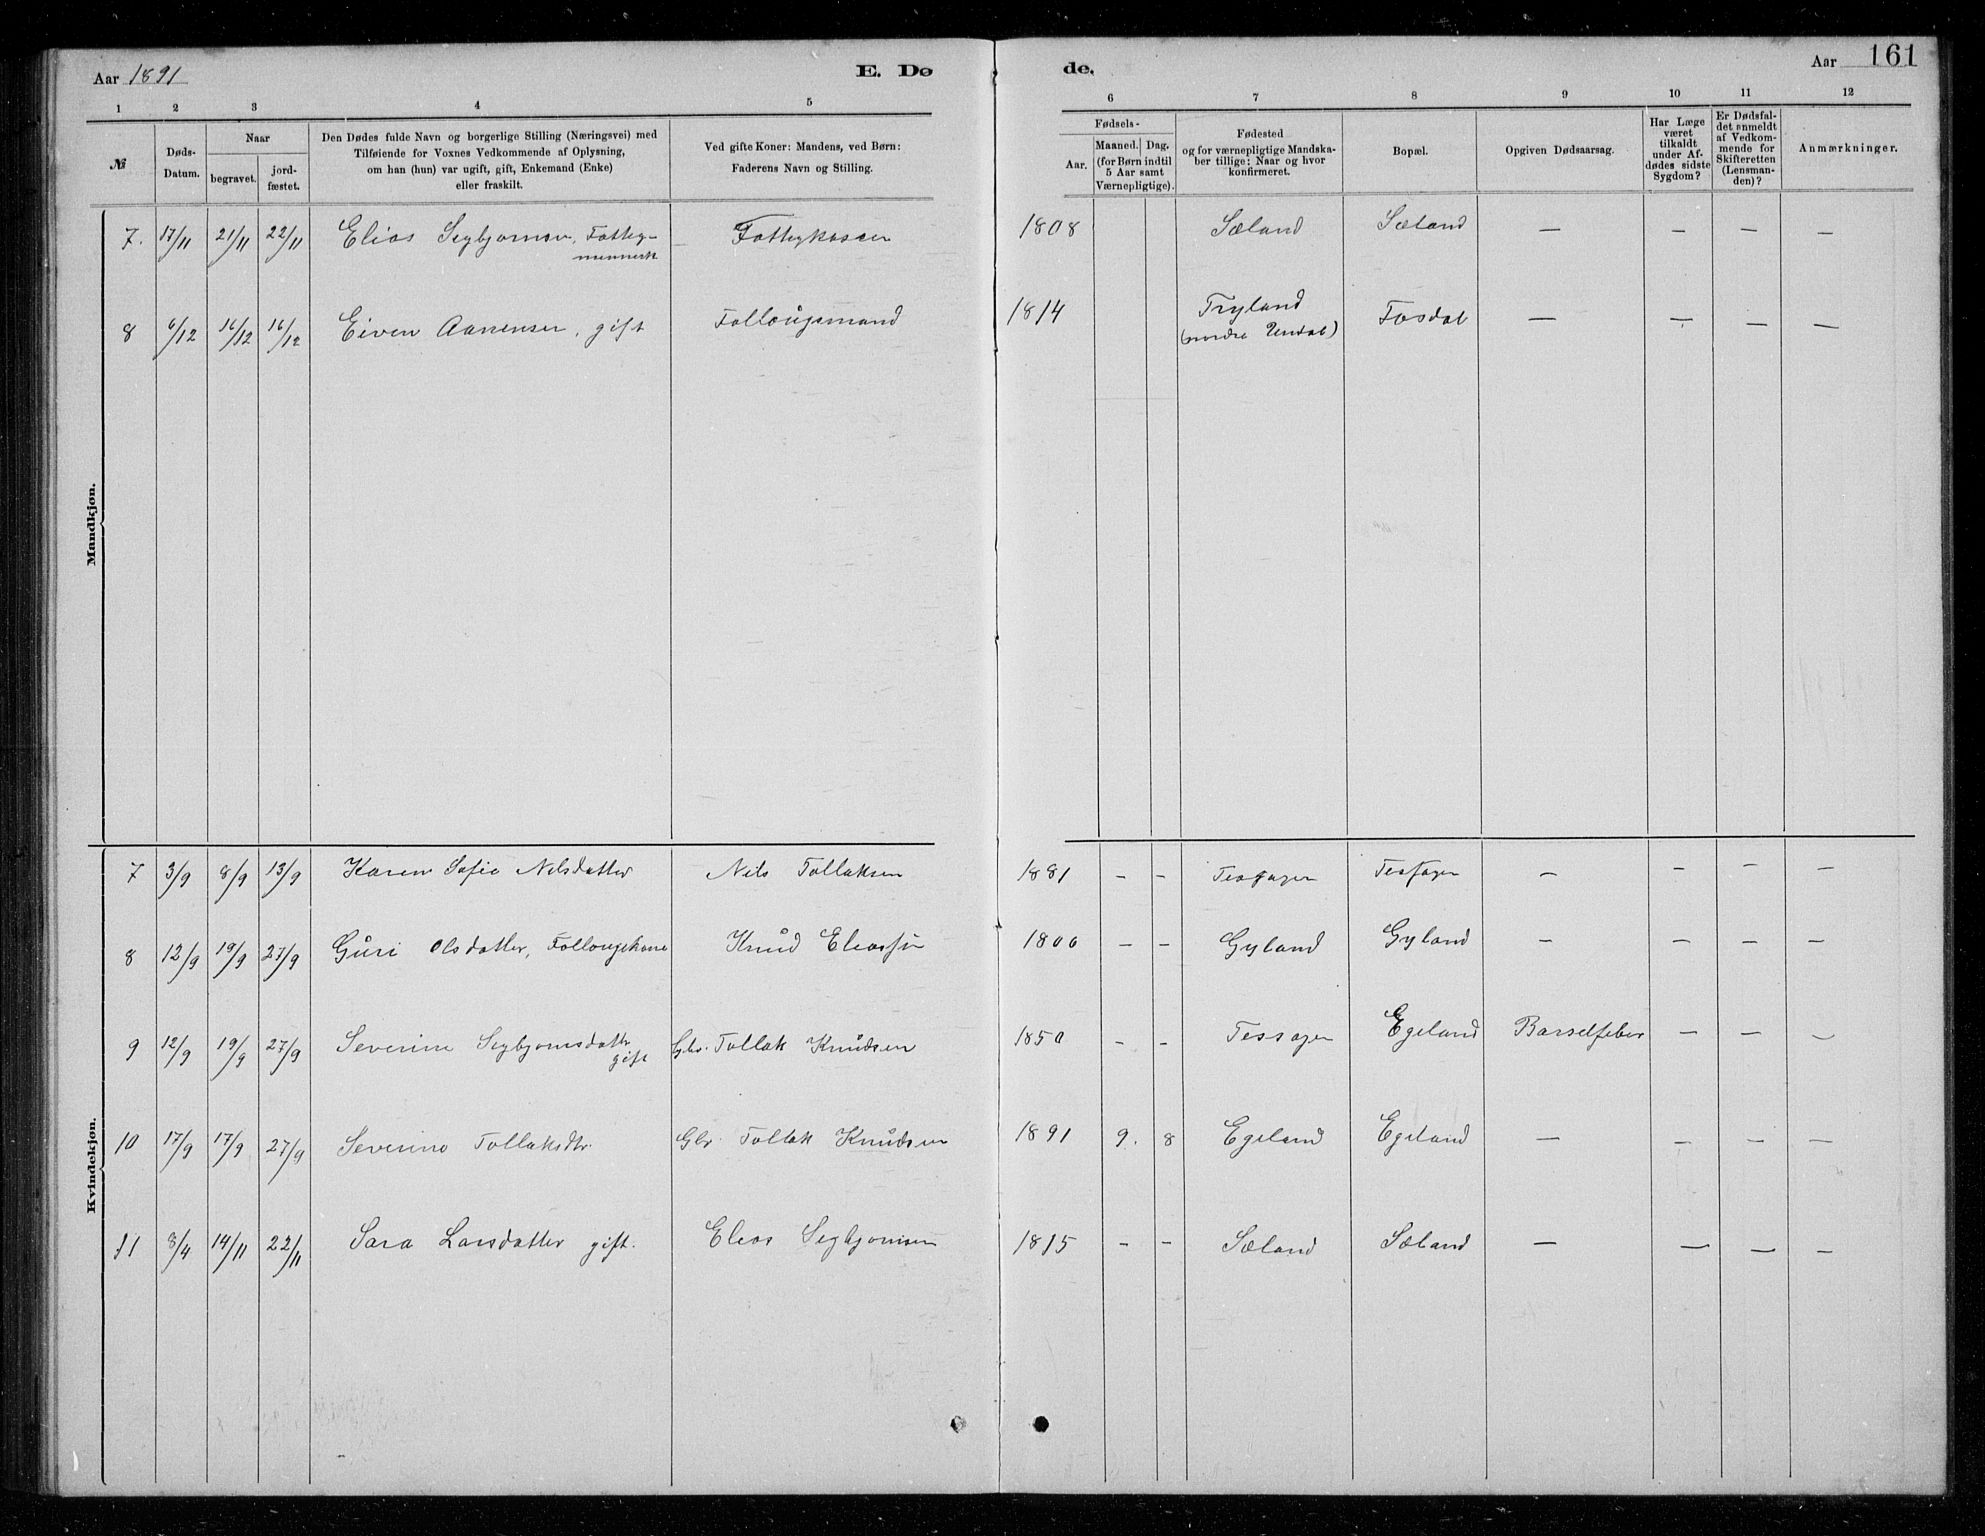 Aar 1891 E. Dø de. Aar 161
1 2 3 4 5 6 7 8 9 10 11 12
№ Døds-Datum. Naar begravet. jordfæstet.
Den Dødes fulde Navn og borgerlige Stilling (Næringsvei) med
Tilføiende for Voxnes Vedkommende af Oplysning,
om han (hun) var ugift, gift, Enkemand (Enke)
eller fraskilt.
Ved gifte Koner: Mandens, ved Børn:
Faderens Navn og Stilling.
Fødsels-
Aar. Maaned. Dag.
(for Børn indtil
5 Aar samt
Værnepligtige).
Fødested
og for værnepligtige Mandska-
ber tillige: Naar og hvor
konfirmeret.
Bopæl.
Opgiven Dødsaarsag.
Har Læge
været
tilkaldt
under Af-
dødes sidste
Sygdom?
Er Dødsfal-
det anmeldt
af Vedkom-
mende for
Skifteretten
(Lensman-
den)?
Anmærkninger.
Mandkjøn.
7. 17/11 21/11 22/11 Elias Segbjornsen, Fattig- Fattigkassen 1808 Sæland Sæland — — — —
mennesk
8 6/12 16/12 16/12 Eiven Aanensen, gift Follougsmand 1814 Tryland Fosdal — — — —
(nordre Undal)
Kvindekjøn.
7 3/9 8/9 13/9 Karen Sofie Nilsdatter Nils Tollaksen 1881 - - — — — —
8 12/9 19/9 27/9 Guri Olsdatter, Follougskone Knud Eleassen 1806 - - Gyland Gyland — — — —
9 12/9 19/9 27/9 Severine Segbjornsdatter Gbr. Tollak Knudsen 1850 - - Egeland Barselfeber — — —
gift
10 17/9 17/9 27/9 Severine Tollaksdtr. Gbr. Tollak Knudsen 1891 9. 8 Egeland Egeland — — — —
11 8/4 14/11 22/11 Sara Larsdatter gift. Eleas Segbjornsen 1815 - - Sæland Sæland — — — —